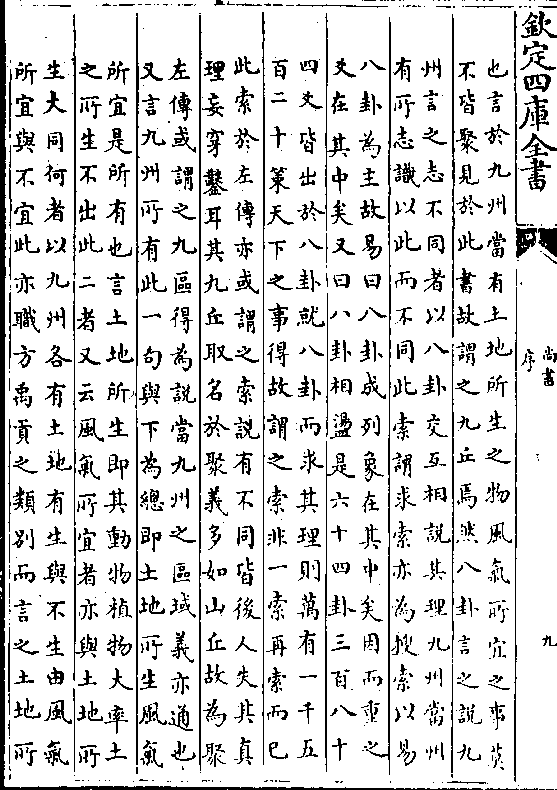 欽定四庫全書
尚書
序
九
也言於九州當有土地所生之物風氣所宜之事莫
不皆聚見於此書故謂之九丘焉然八卦言之說九
州言之志不同者以八卦交互相說其理九州當州
有所志識以此而不同此索謂求索亦為搜索以易
八卦為主故易曰八卦成列象在其中矣因而重之
爻在其中矣又曰八卦相盪是六十四卦三百八十
四爻皆出於八卦就八卦而求其理則萬有一千五
百二十策天下之事得故謂之索非一索再索而已
此索於左傳亦或謂之索說有不同皆後人失其真
理妄穿鑿耳其九丘取名於聚義多如山丘故為聚
左傳或謂之九區得為說當九州之區域義亦通也
又言九州所有此一句與下為總即土地所生風氣
所宜是所有也言土地所生即其動物植物大率土
之所生不出此二者又云風氣所宜者亦與土地所
生大同何者以九州各有土地有生與不生由風氣
所宜與不宜此亦職方禹貢之類別而言之土地所